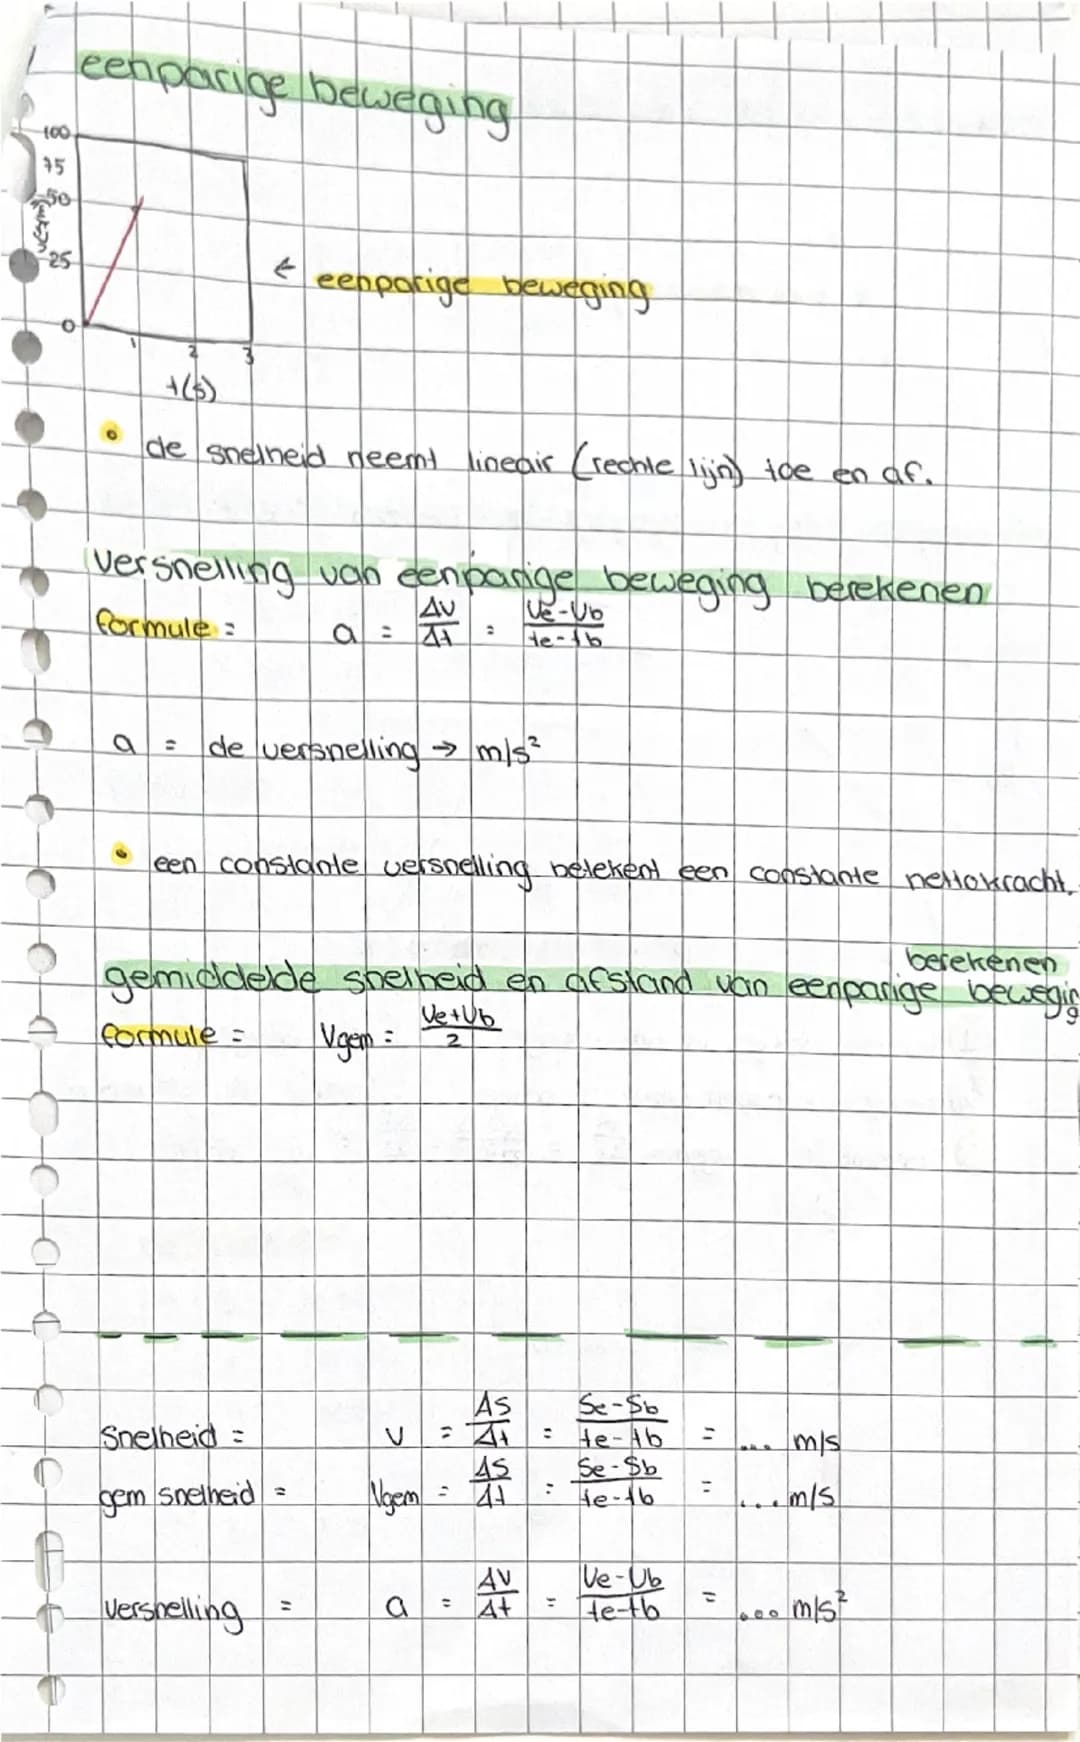 eenparige beweging
100
75
50
25
0
1 2 3
t(s)
← eenparige beweging
• de snelheid neemt lineair (rechte lijn) toe en af.
versnelling van eenparige beweging berekenen
formule = a = Δv/Δt = Ve-Vb/te-tb
a = de versnelling → m/s²
• een constante versnelling betekent een constante nettokracht.
berekenen
gemiddelde snelheid en afstand van eenparige beweging
formule = Vgem = Ve+Vb/2
Snelheid = v = Δs/Δt = Se-Sb/te-tb = ... m/s
gem snelheid = Vgem = Δs/Δt = Se-Sb/te-tb = ... m/s
Versnelling = a = Δv/Δt = Ve-Vb/te-tb = ... m/s²